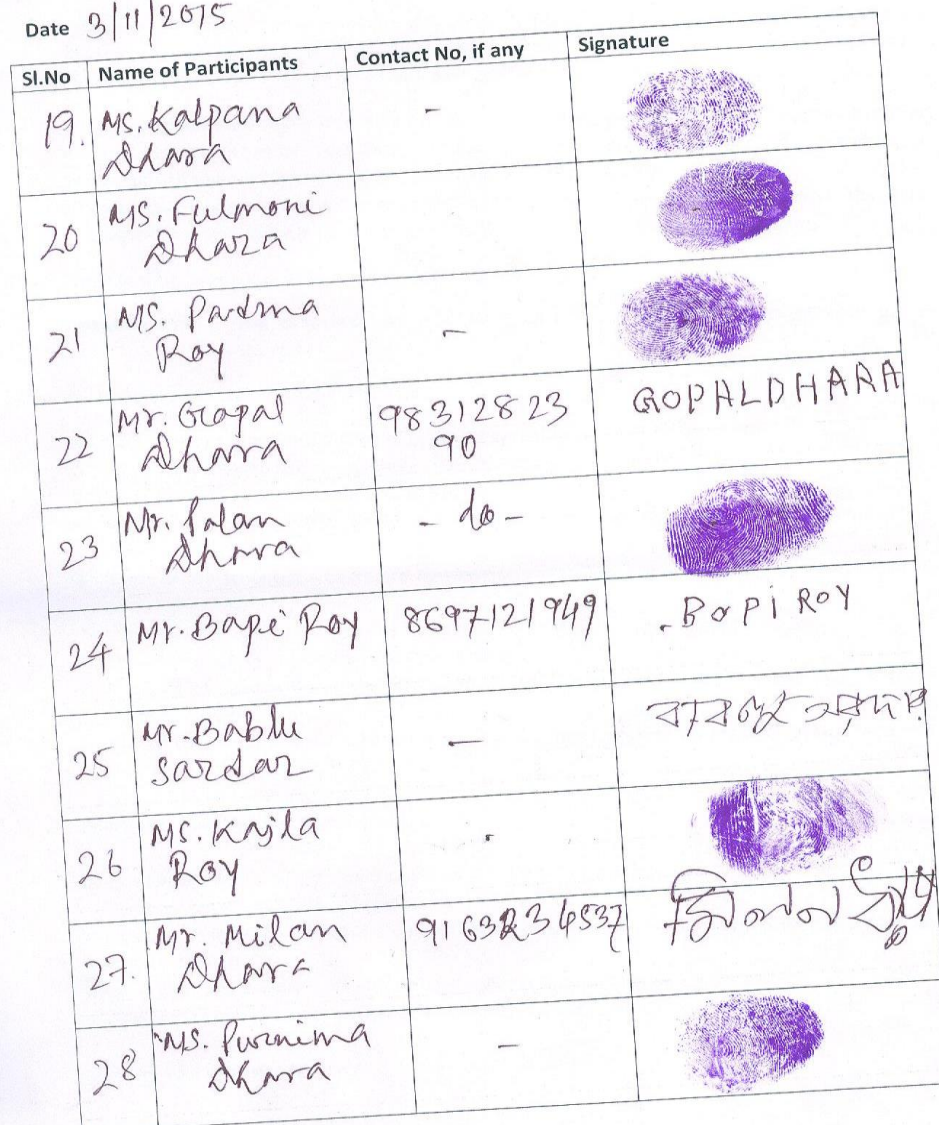 Date 3/11/2015
Sl.No Name of Participants Contact No, if any Signature
19. Ms. Kalpana -
Dhara
20 Ms. Fulmoni
Dhara
21 Ms. Padma -
Roy
22 Mr. Gopal 98312823 GOPALDHARA
Dhara 90
23 Mr. Palan - do -
Dhara
24 Mr. Bapi Roy 8697121949 . BOPI ROY
25 Mr. Bablu -
Sardar
26 Ms. Kajla .
Roy
27. Mr. Milan মিলন
Dhara
28 Ms. Purnima -
Dhara